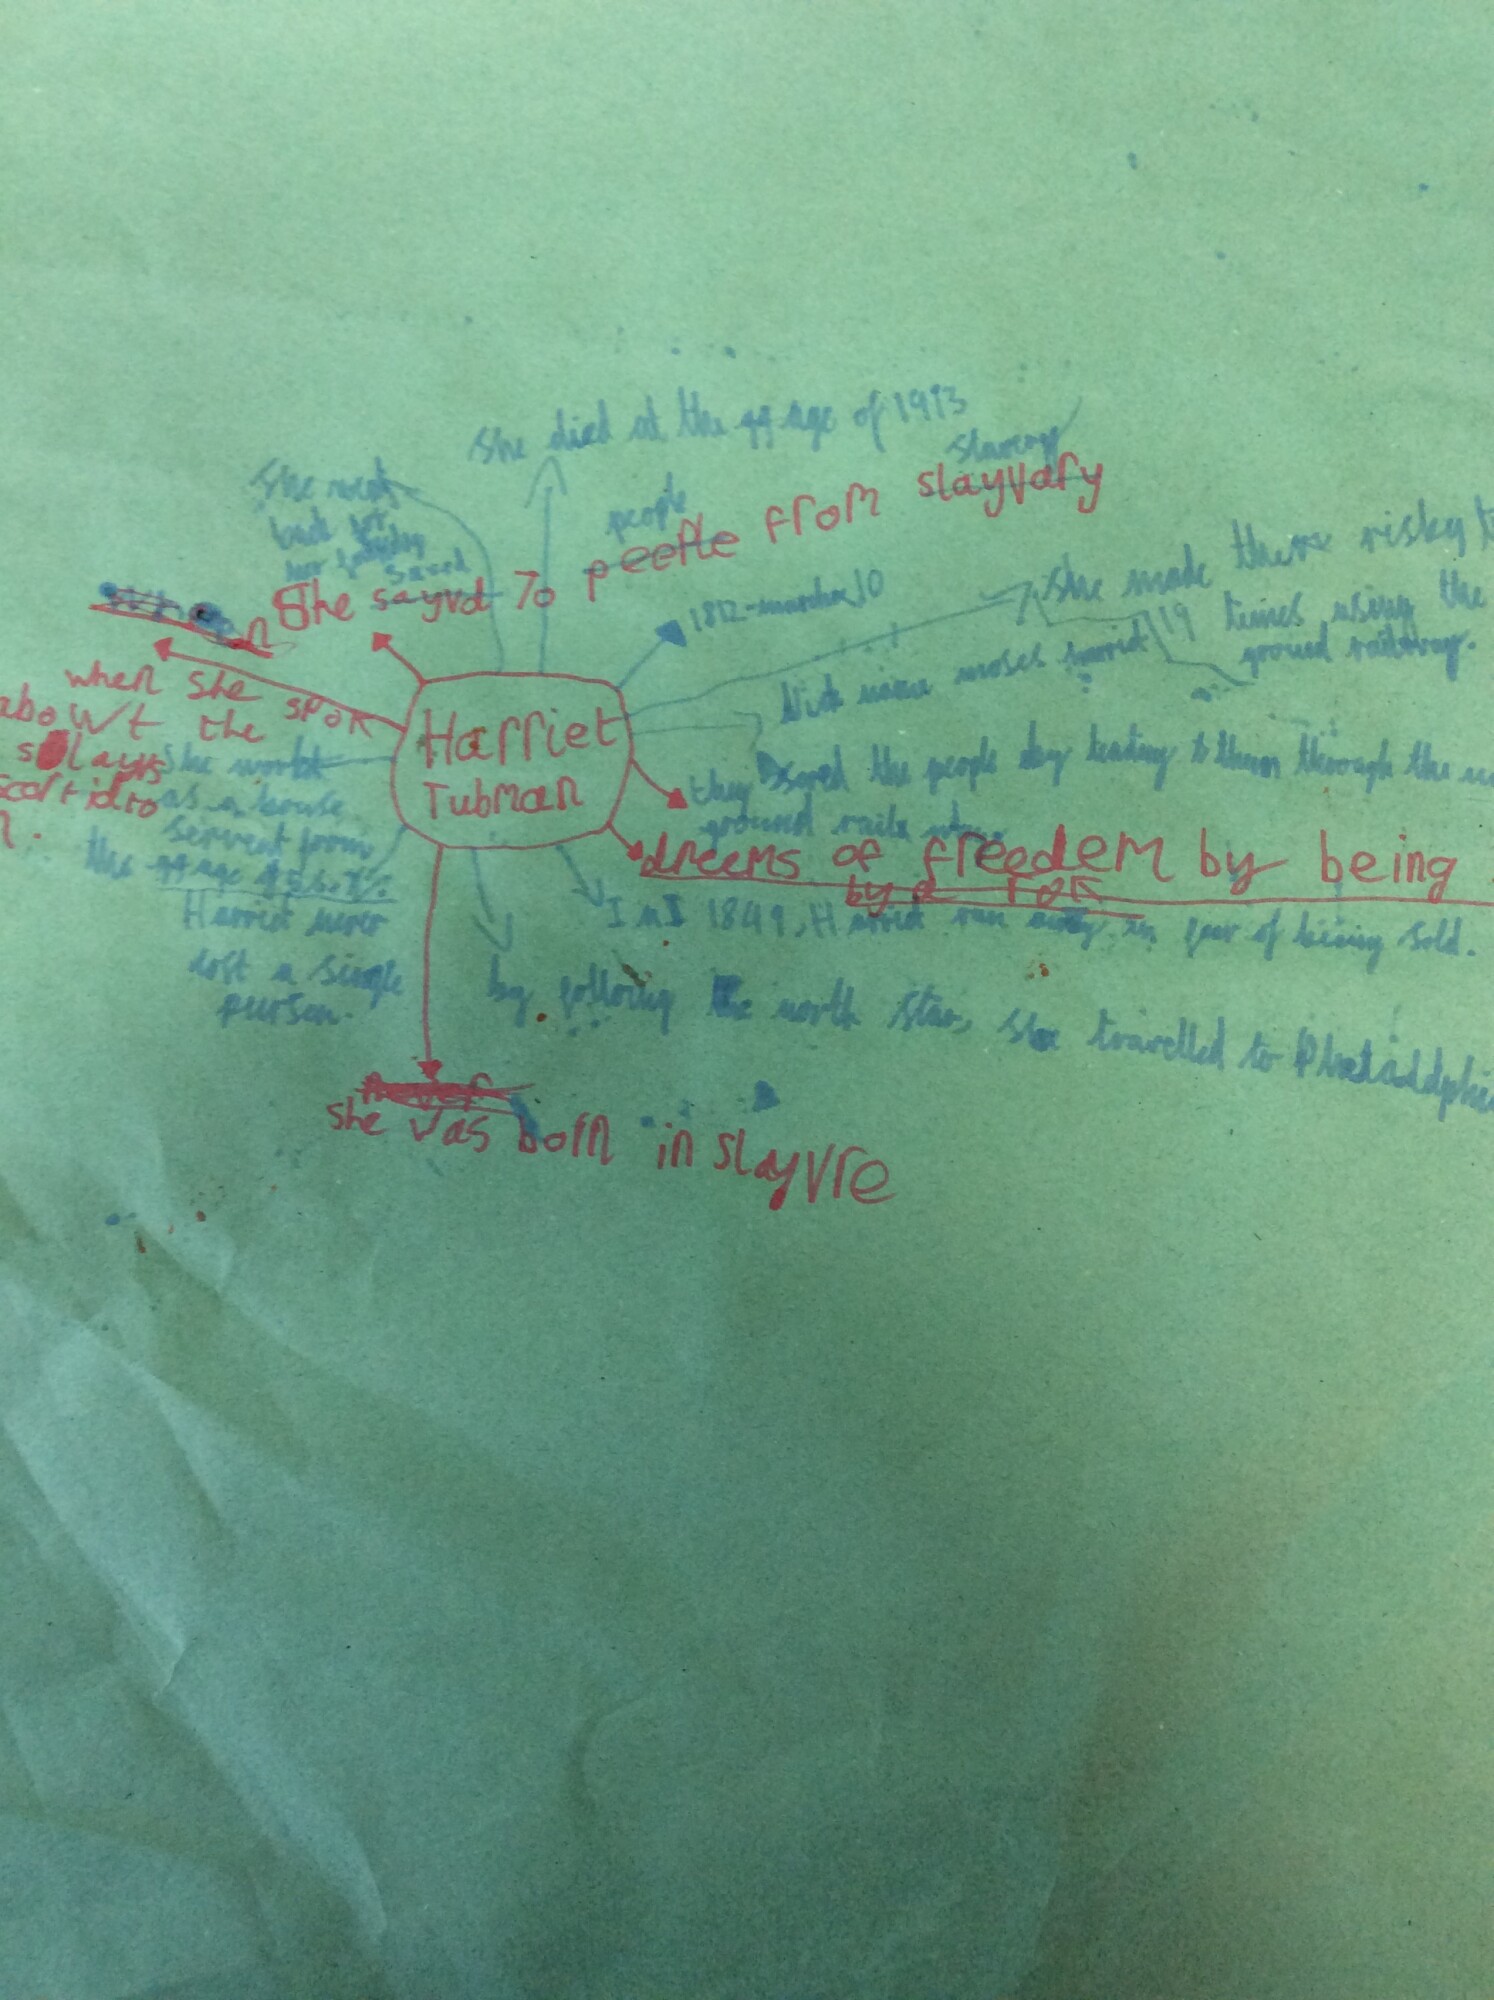 She died at the 99 age of 1913
slavery
She went
back for
her family
people
saved
She sayvd 70 peefle from slayvary
1812-march 10
She made there risky
19 times using the
ground railway.
Nick name moses
when she spok
abowt the
slays
Harriet
Tubman
saved the people by leading them through the
they
ground rails
She workt
as a house
servent from
the age of
dreems of freedem by being
by a
In 1849, Harriet run away in fear of being sold.
Harriet never
lost a single
person.
by following the north star, she travelled to
she was born in slayvre